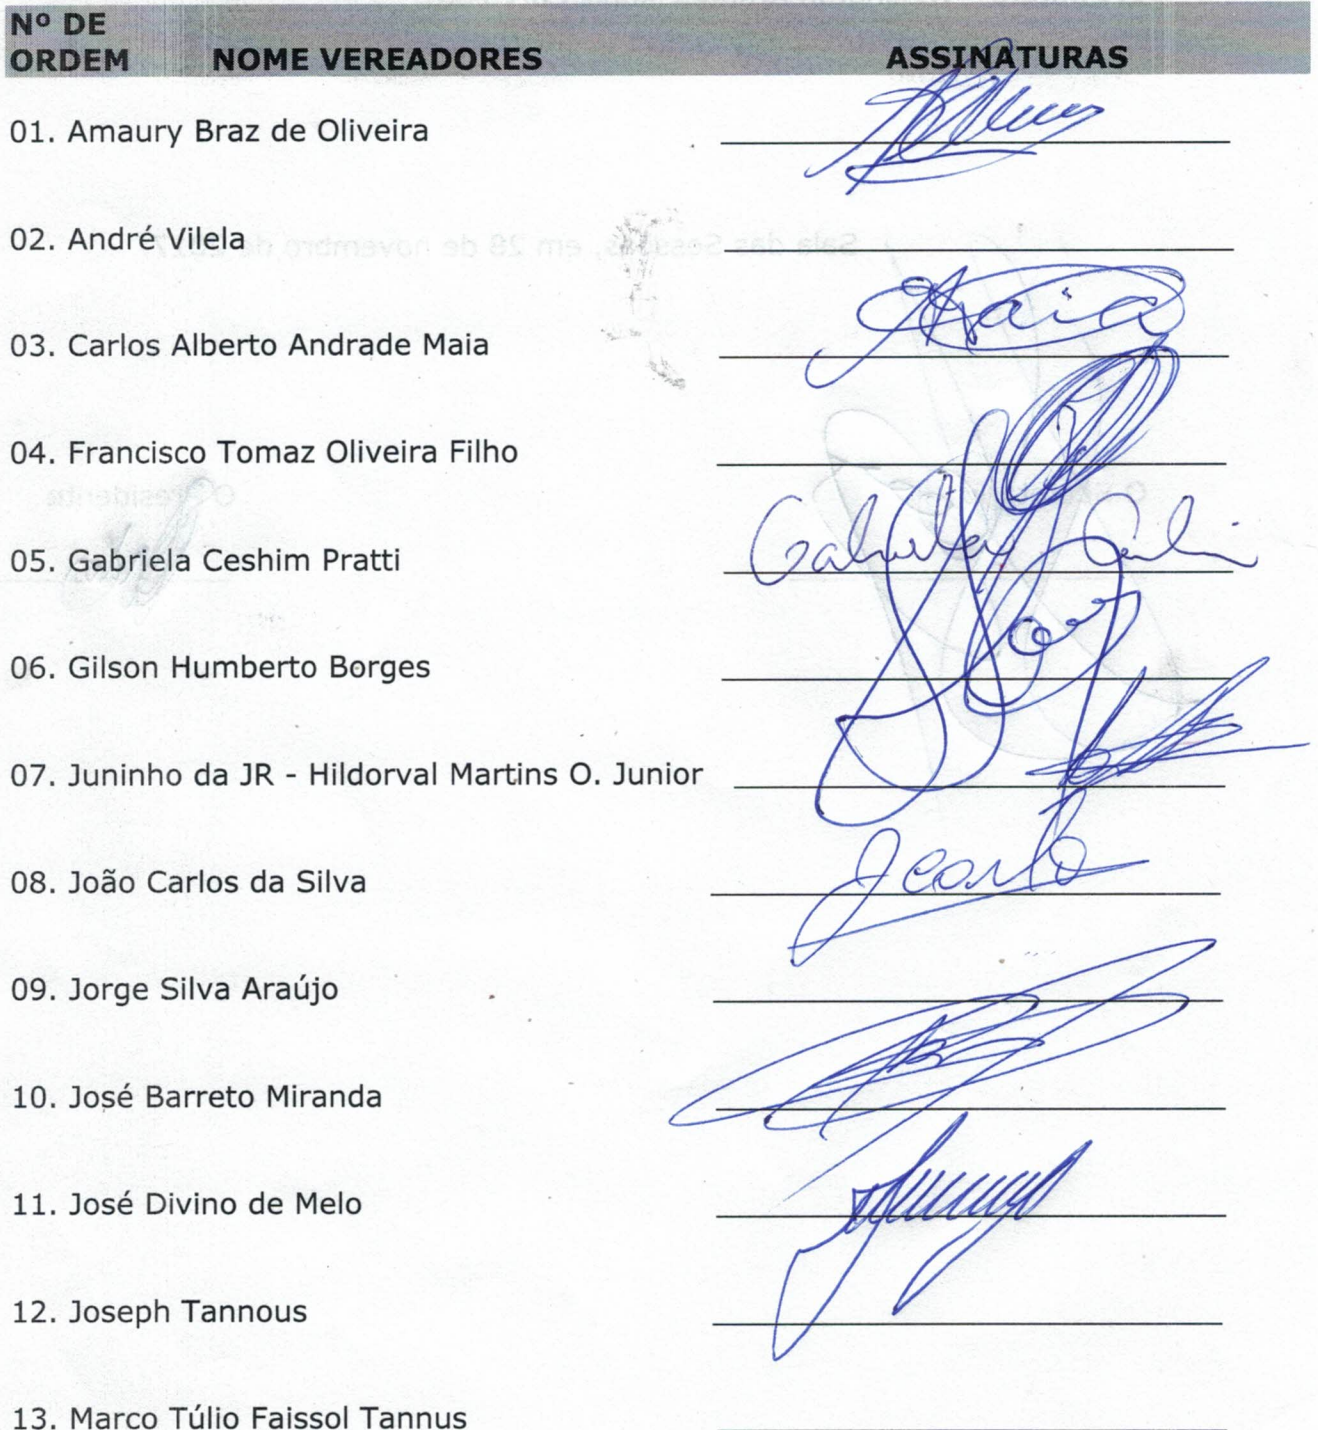 Nº DE
ORDEM NOME VEREADORES ASSINATURAS
01. Amaury Braz de Oliveira
02. André Vilela
03. Carlos Alberto Andrade Maia Maia
04. Francisco Tomaz Oliveira Filho
05. Gabriela Ceshim Pratti Gabriela
06. Gilson Humberto Borges
07. Juninho da JR - Hildorval Martins O. Junior
08. João Carlos da Silva
09. Jorge Silva Araújo
10. José Barreto Miranda
11. José Divino de Melo
12. Joseph Tannous
13. Marco Túlio Faissol Tannus